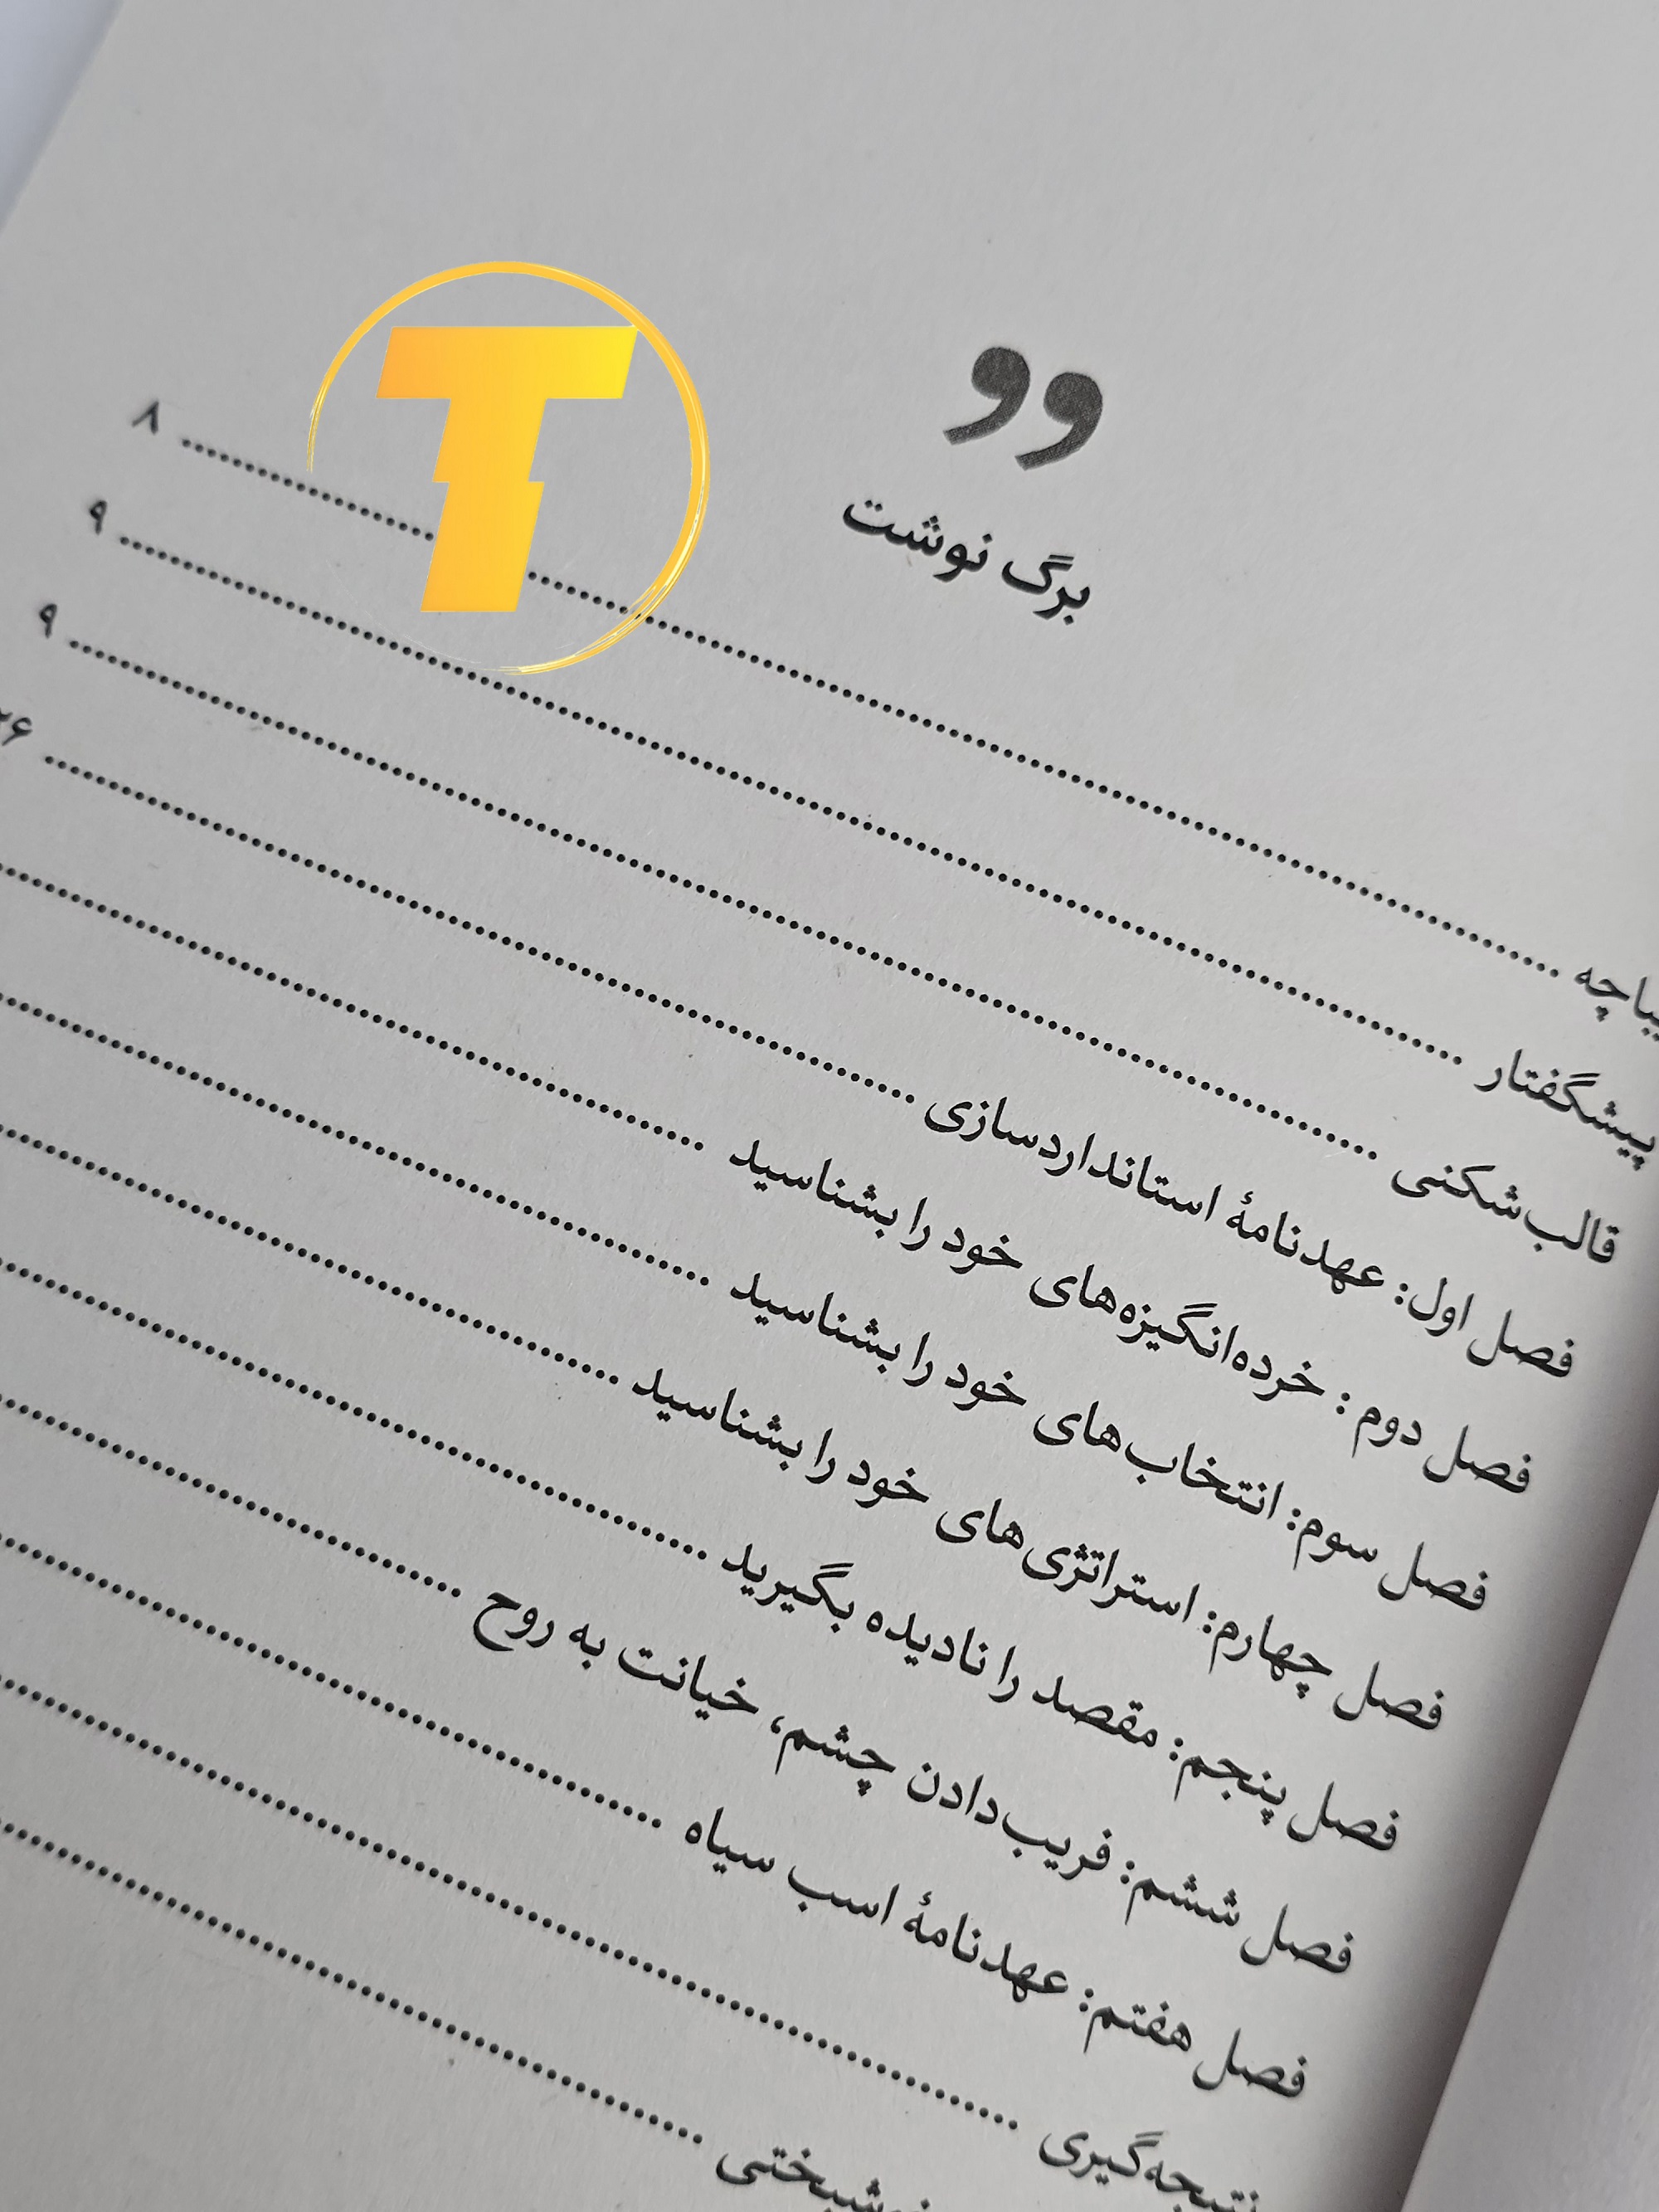 T
برگ نوشت
۸
پیشگفتار ۹
قالب‌شکنی ۹
فصل اول: عهدنامهٔ استانداردسازی
فصل دوم: خرده‌انگیزه‌های خود را بشناسید
فصل سوم: انتخاب‌های خود را بشناسید
فصل چهارم: استراتژی‌های خود را بشناسید
فصل پنجم: مقصد را نادیده بگیرید
فصل ششم: فریب‌دادن چشم، خیانت به روح
فصل هفتم: عهدنامهٔ اسب سیاه
نتیجه‌گیری